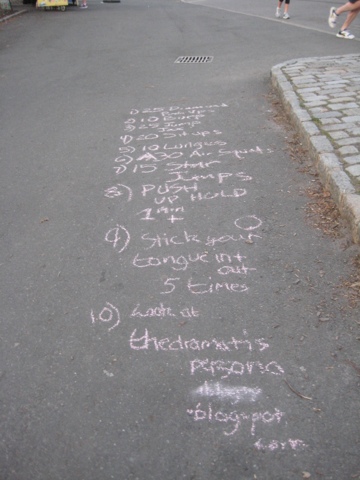 1) 25 Diamond
Push ups
2) 10 Burp
3) 25 Jump
Jax
4) 20 Situps
5) 10 Lunges
6) 30 Air Squats
7) 15 Star
Jumps
8) PUSH
UP HOLD
1 min
+
9) Stick your
tongue in +
out
5 times
10) Look at
thedramatis
persona
blogspot
.com